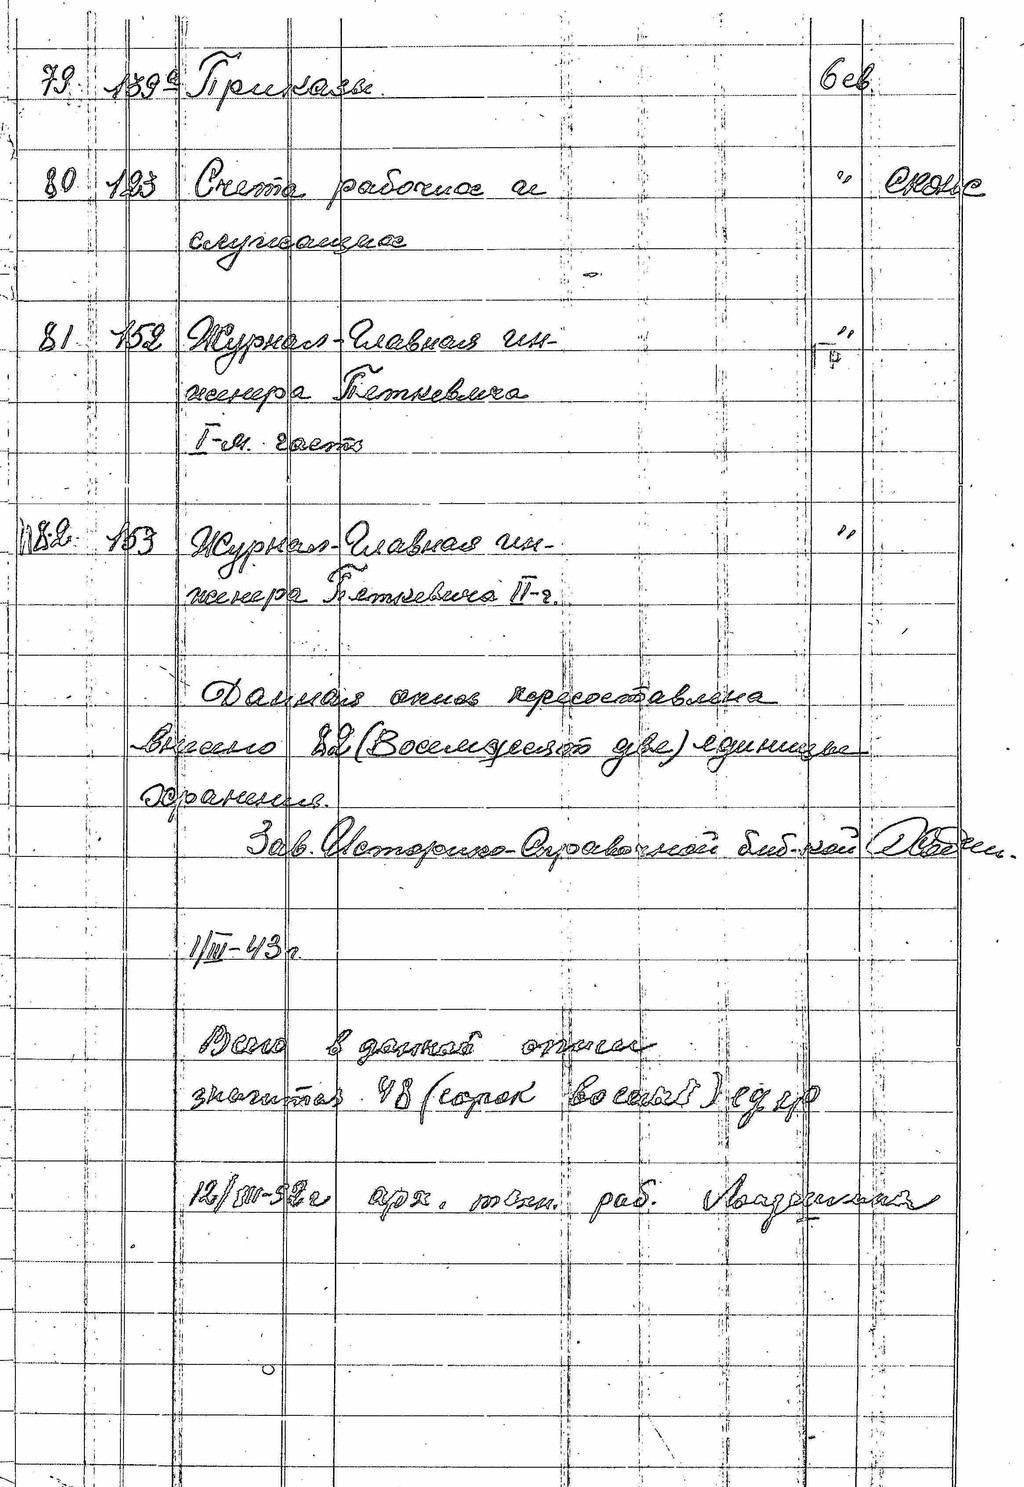 79. 139а Приказы. 6 ев.
80 123 Счета рабочие и " сконс
служащие
81 152 Журнал-Главная ин- "
женера Петкевича Гр
I-я. часть
82 153 Журнал-Главная ин- "
женера Петкевича II-ч.
Данная опись пересоставлена
внесено 82 (Восемдесят две) единицы
хранения.
Зав. Историко-Справочной биб-кой
1/III-43 г.
Всего в данной описи
значится 48 (сорок восемь) ед хр
12/III-52 г арх. техн. раб.